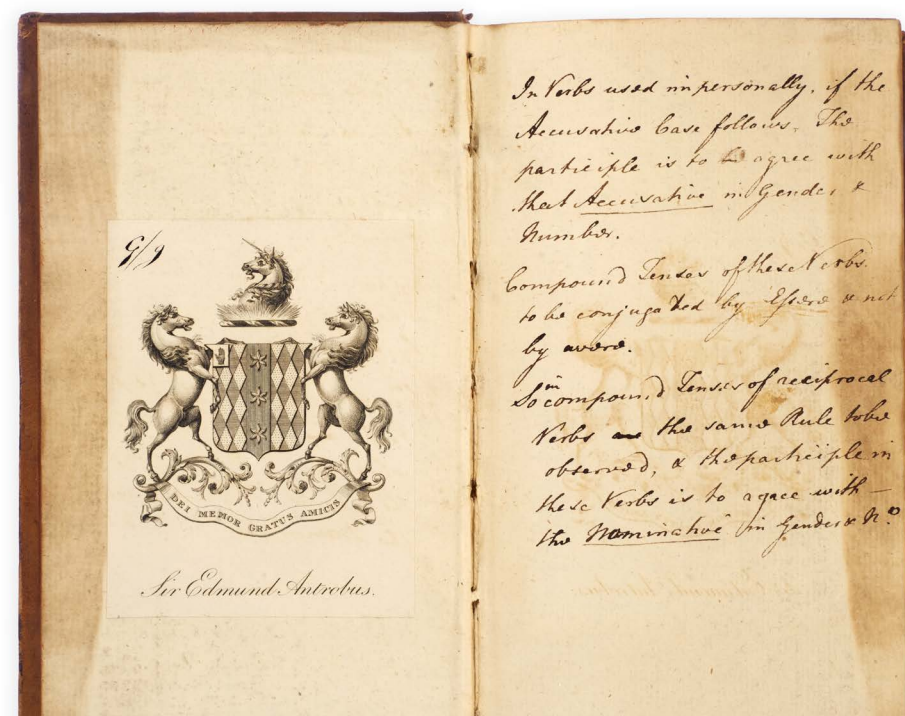 DEI MEMOR GRATUS AMICIS
Sir Edmund Antrobus.
In Verbs used impersonally, if the
Accusative Case follows. The
participle is to be agree with
that Accusative in Gender &
Number.
Compound Tenses of these Verbs
to be conjugated by Essere & not
by avere.
So in compound Tenses of reciprocal
Verbs the same Rule to be
observed, & the participle in
these Verbs is to agree with
the Nominative in Gender & No.